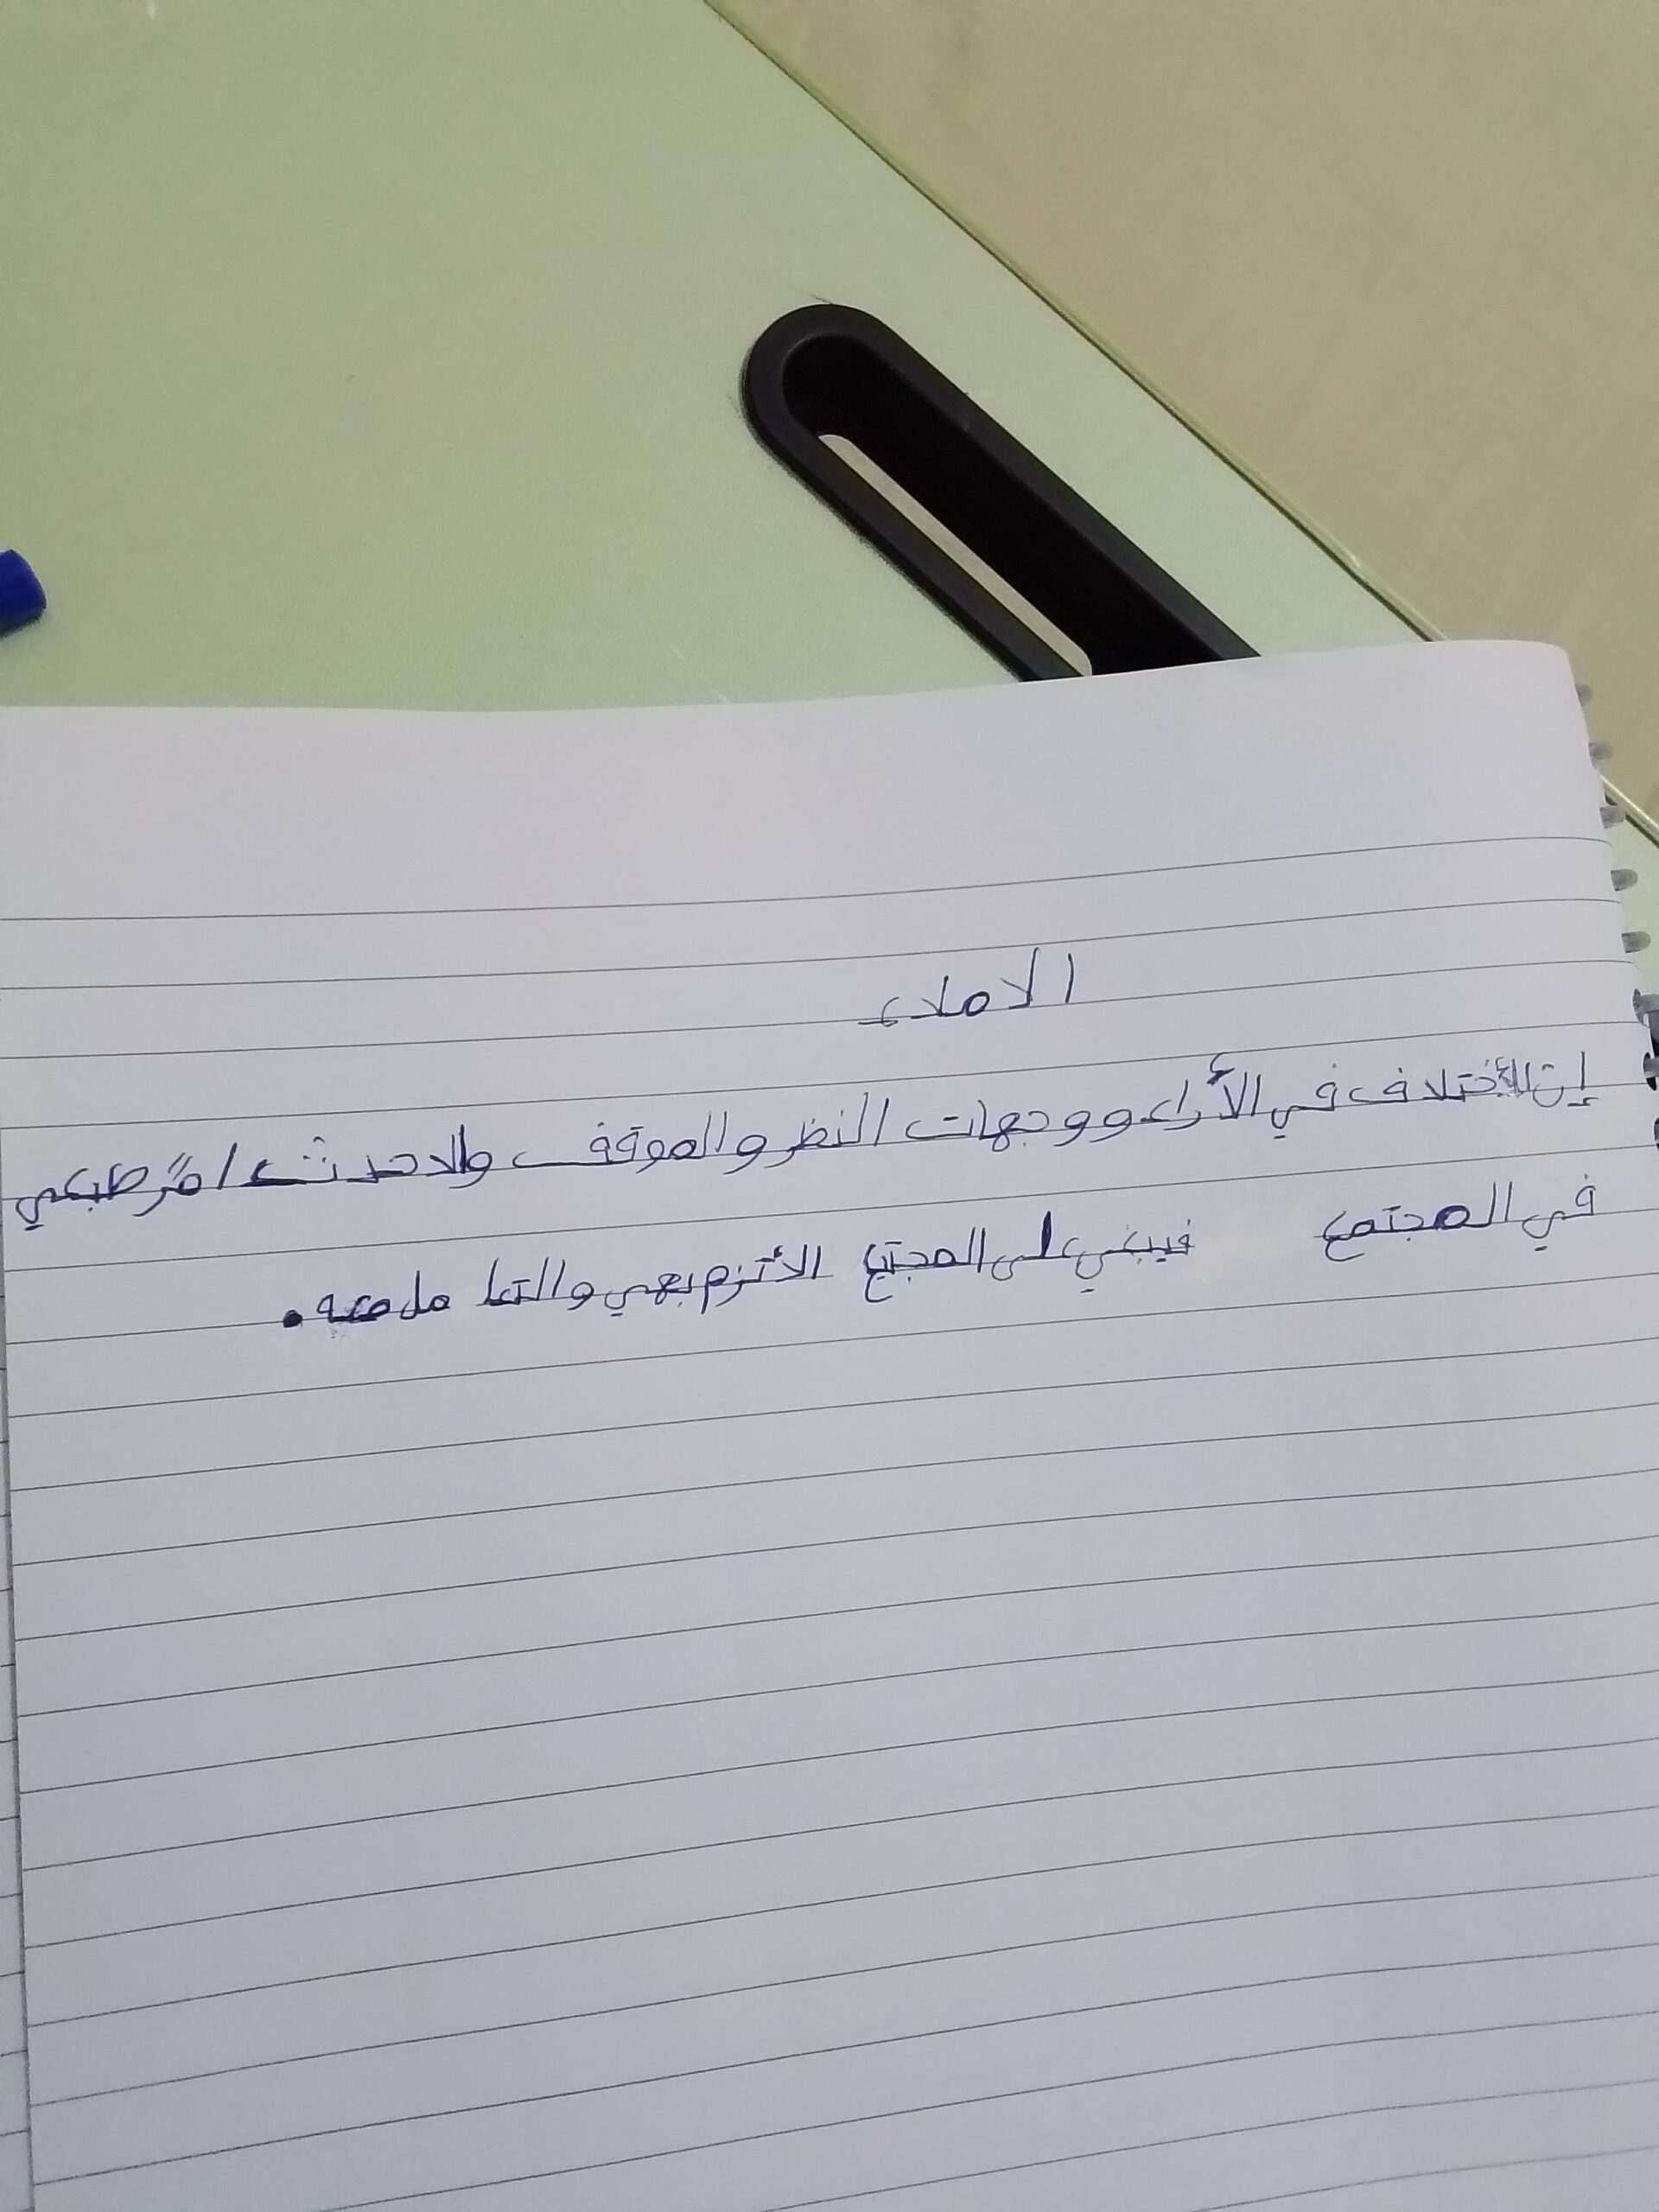 الاملاء
إن الأختلاف في الأراء ووجهات النظر والموقف ولاحدث امرُ طبعي
في المجتمع فيبغي على المجتمع الأتزم بهي والتعا مل معه.